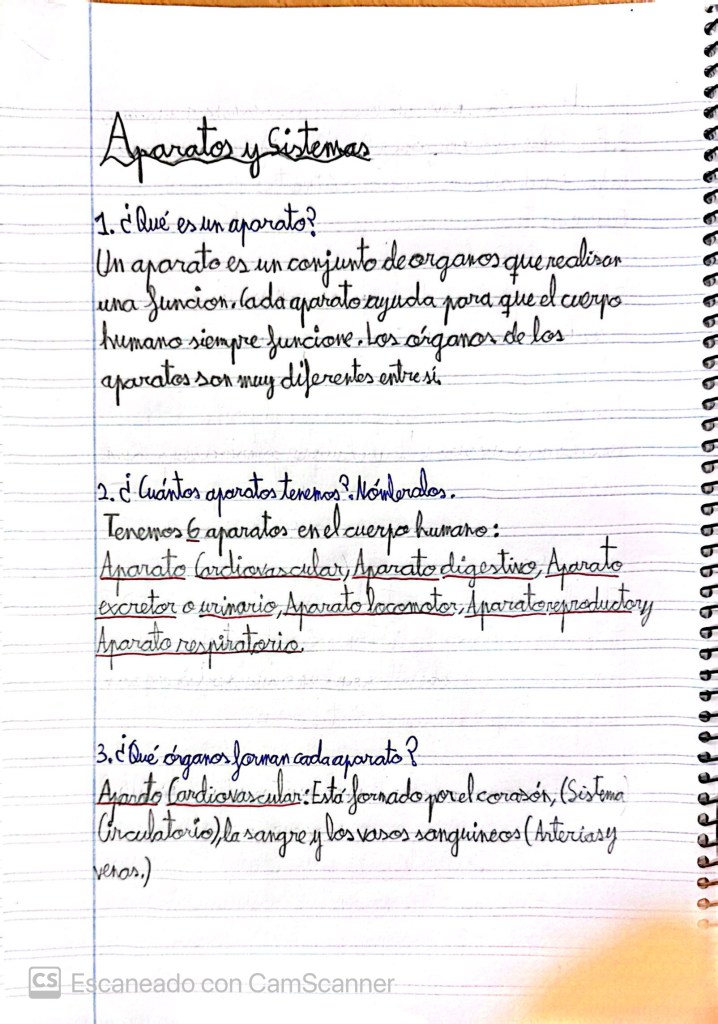 Aparatos y Sistemas
1. ¿Qué es un aparato?
Un aparato es un conjunto de organos que realizan
una funcion. Cada aparato ayuda para que el cuerpo
humano siempre funcione. Los órganos de los
aparatos son muy diferentes entre sí.
2. ¿Cuántos aparatos tenemos? Nómbralos.
Tenemos 6 aparatos en el cuerpo humano:
Aparato Cardiovascular, Aparato digestivo, Aparato
excretor o urinario, Aparato locomotor, Aparato reproductor y
Aparato respiratorio.
3. ¿Qué órganos forman cada aparato?
Aparato Cardiovascular: Está formado por el corasón, (Sistema
Circulatorio), la sangre y los vasos sanguineos (Arterias y
venas.)
CS Escaneado con CamScanner